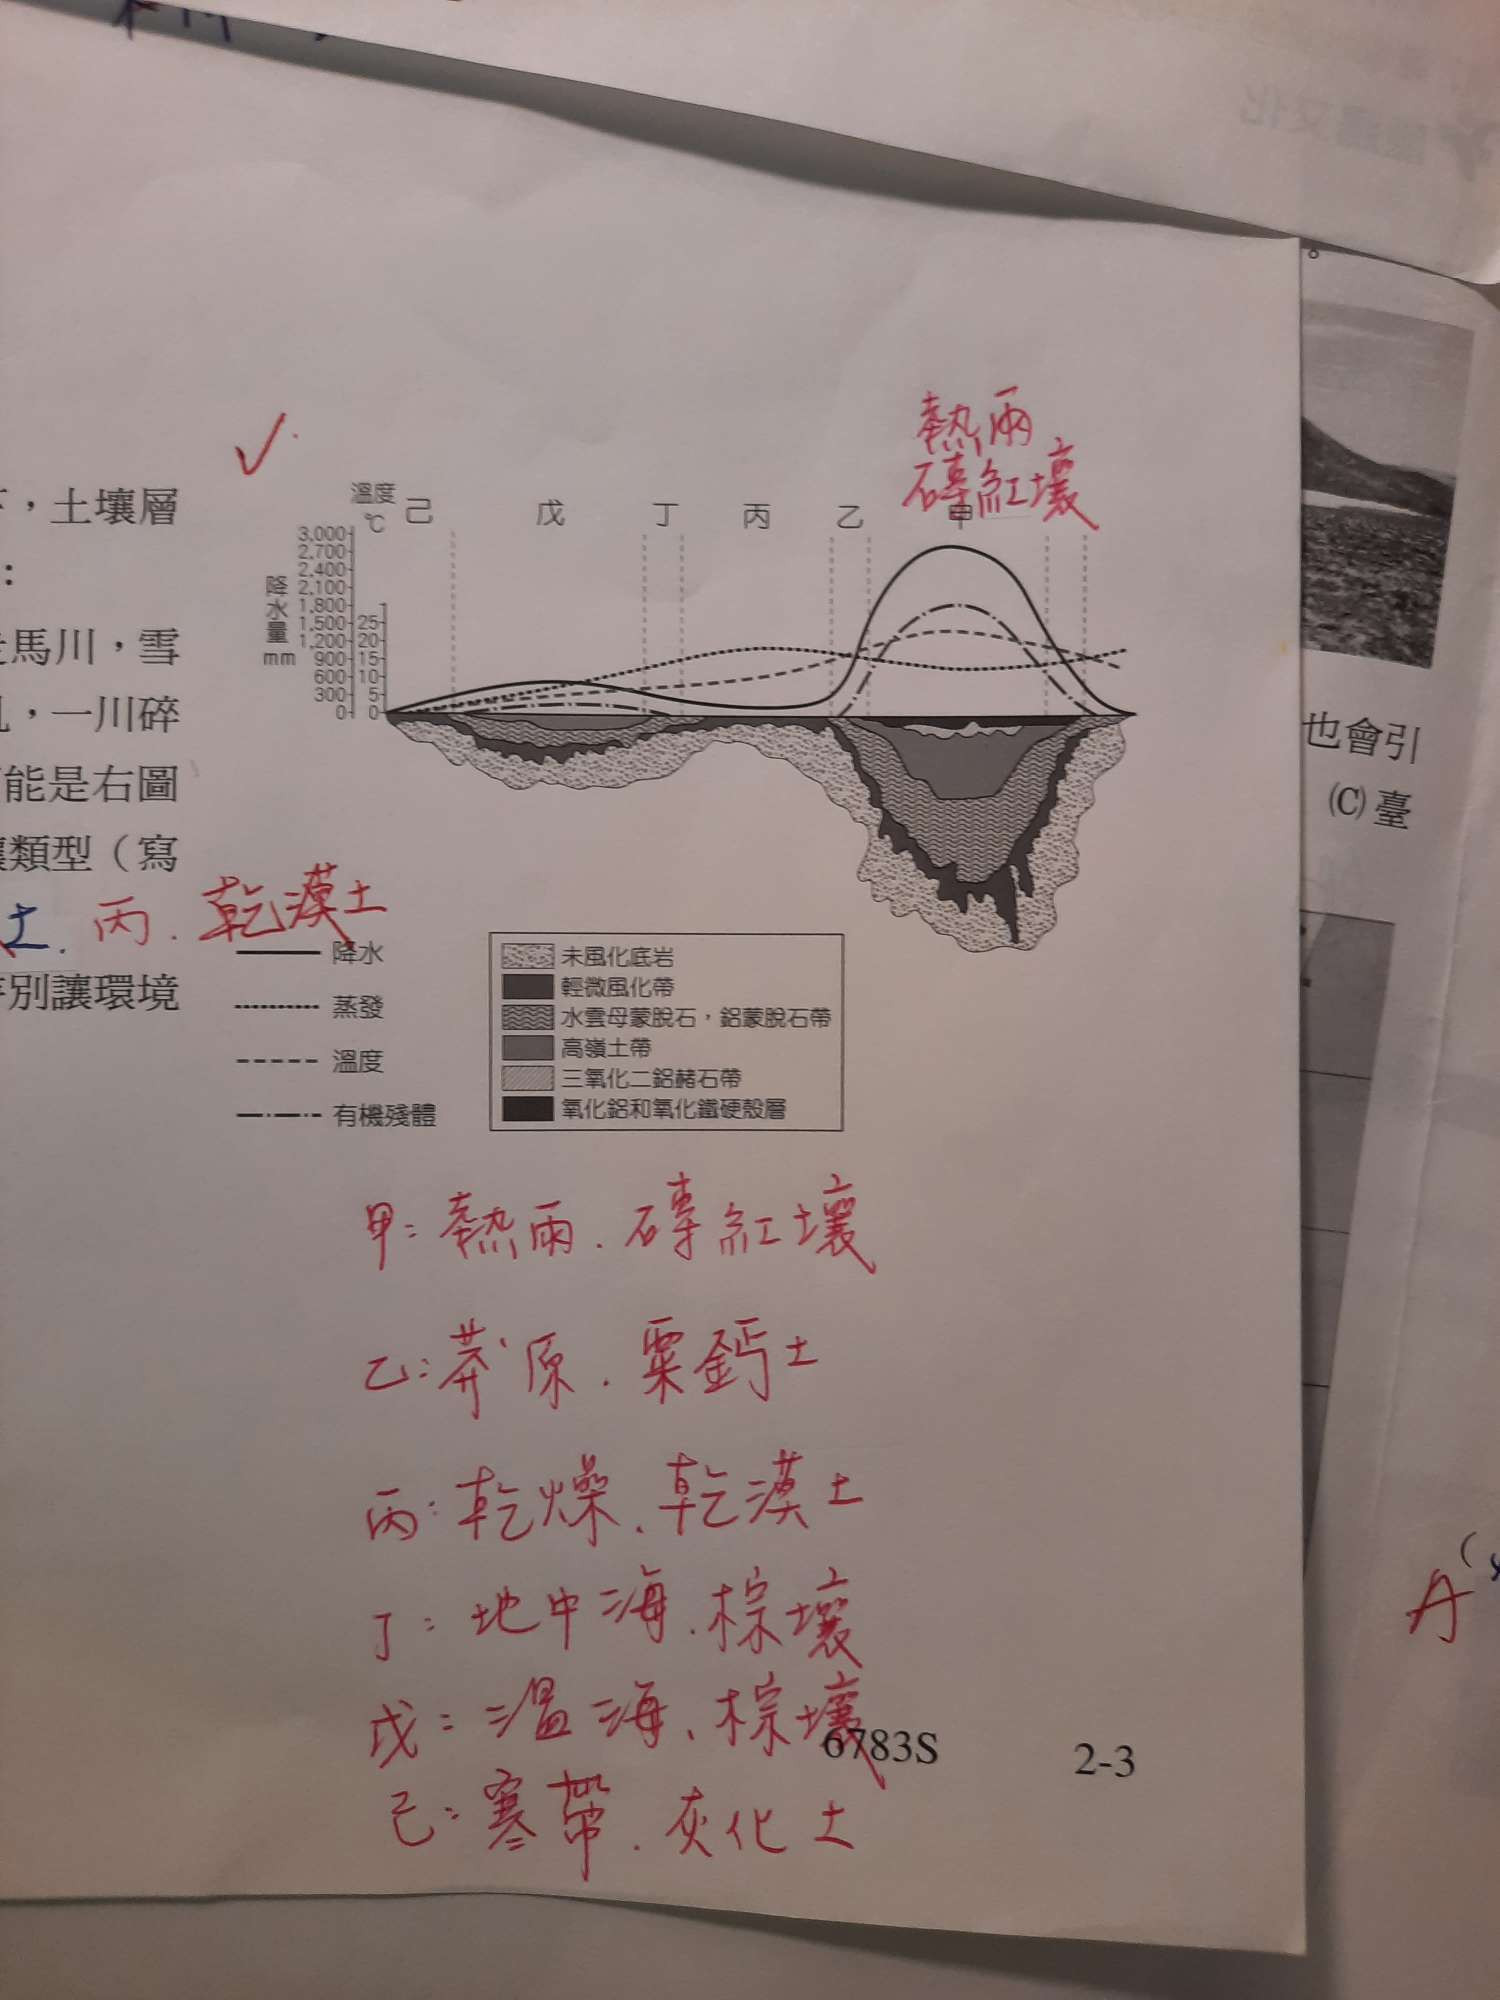 隱遁文化
，土壤層
：
走馬川，雪
，一川碎
能是右圖
壤類型（寫
土．丙．乾漠土
別讓環境
熱雨
磚紅壤
溫度
℃
己 戊 丁 丙 乙 甲
降水量
mm
3,000
2,700
2,400
2,100
1,800
1,500 25
1,200 20
900 15
600 10
300 5
0 0
降水
蒸發
溫度
有機殘體
未風化底岩
輕微風化帶
水雲母蒙脫石，鋁蒙脫石帶
高嶺土帶
三氧化二鋁赭石帶
氧化鋁和氧化鐵硬殼層
甲：熱雨．磚紅壤
乙：莽原．栗鈣土
丙：乾燥、乾漠土
丁：地中海．棕壤
戊：溫海、棕壤
己：寒帶．灰化土
6783S 2-3
也會引
(C)臺
A